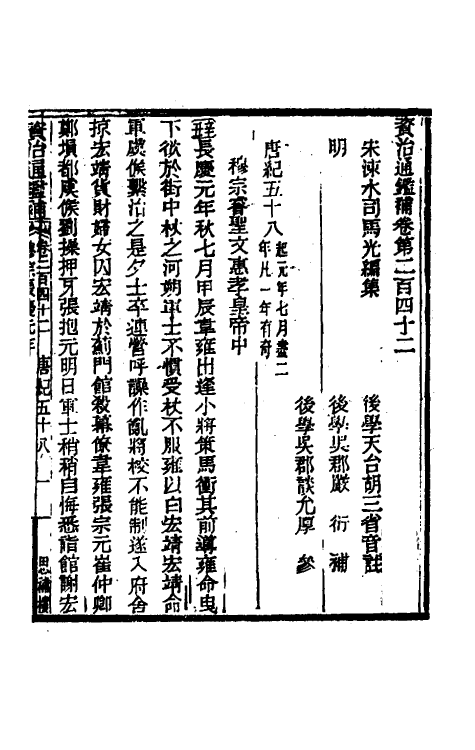 資治通鑑補卷第二百四十二
宋涑水司馬光編集
後學天台胡三省音註
明
後學吳郡嚴 衍 補
後學吳郡談允厚 參
唐紀五十八起元年七月盡二年凡一年有奇
穆宗睿聖文惠孝皇帝中
長慶元年秋七月甲辰韋雍出逢小將策馬衝其前導雍命曳
下欲於街中杖之河朔軍士不慣受杖不服雍以白宏靖宏靖命
軍虞候繫治之是夕士卒連營呼譟作亂將校不能制遂入府舍
掠宏靖貨財婦女囚宏靖於薊門館殺幕僚韋雍張宗元崔仲卿
鄭塤都虞候劉操押牙張抱元明日軍士稍稍自悔悉詣館謝宏
資治通鑑補 卷二百四十二 唐紀五十八 一 思補樓